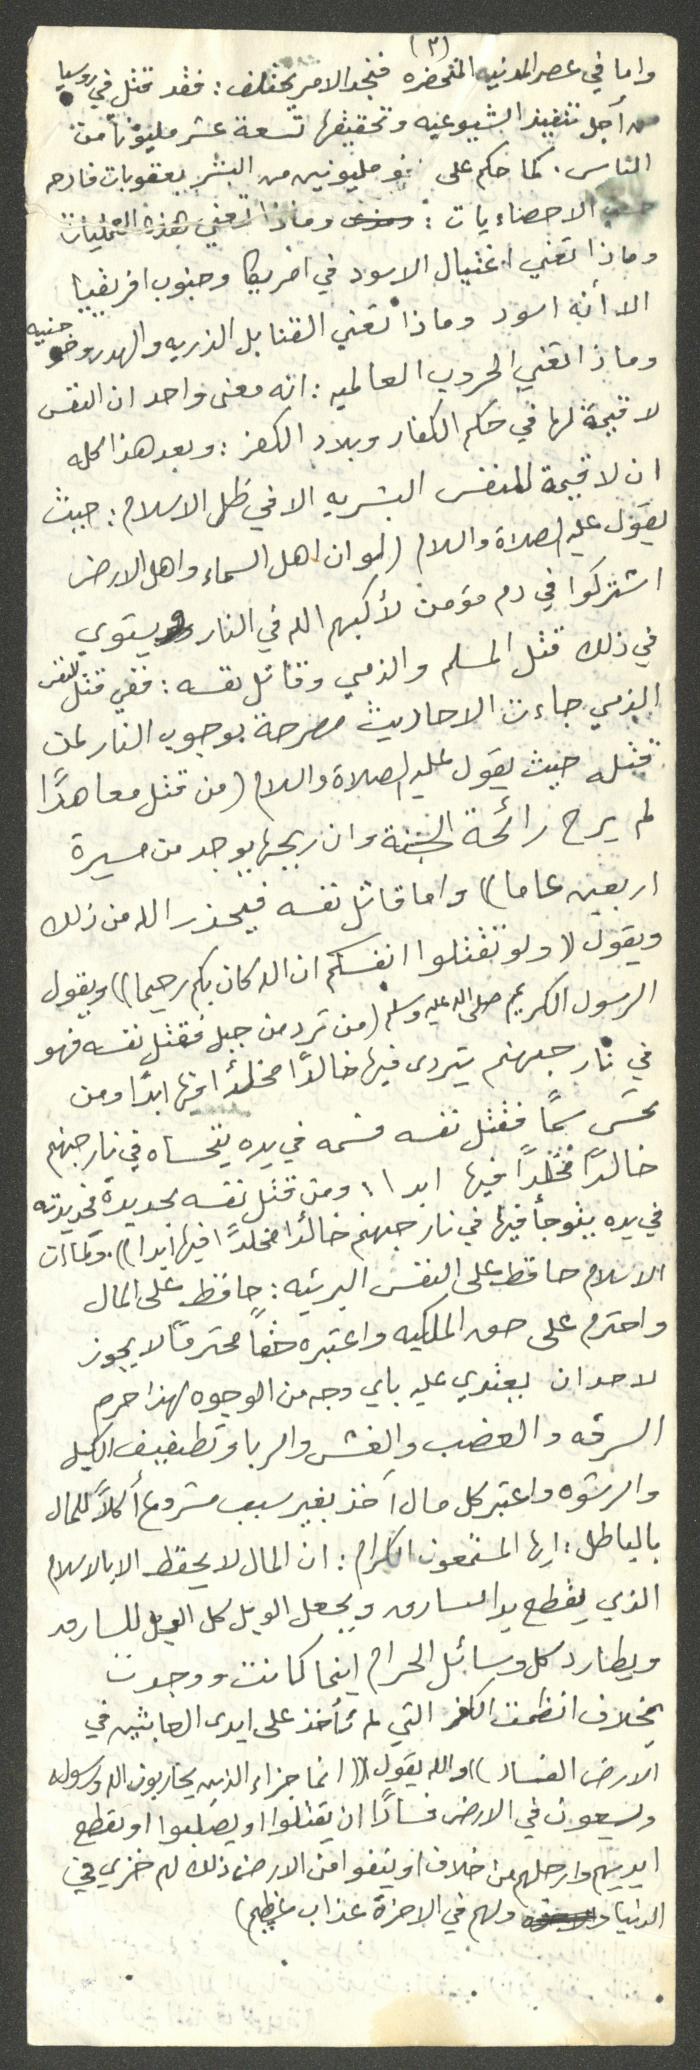 (٣)
واما في عصر المدنيه المتحضره فنجد الامر يختلف : فقد قتل في روسيا
من أجل تنفيذ الشيوعيه وتحقيقها تسعة عشر مليوناً من
الناس . كما حكم على نحو مليونين من البشر بعقوبات فادحه
حسب الاحصاءيات : وماذا تعني هذه العمليات
وماذا تعني اغتيال الاسود في امريكا وجنوب افريقيا
الا أنه اسود وماذا تعني القنابل الذريه والهدروجنيه
وماذا تعني الحروب العالميه : انه معنى واحد ان النفس
لا قيمة لها في حكم الكفار وبلاد الكفر : وبعد هذا كله
ان لا قيمة للنفس البشريه الا في ظل الاسلام : حيث
يقول عليه الصلاة والسلام (لو ان اهل السماء واهل الارض
اشتركوا في دم مؤمن لأكبهم الله في النار ويستوي
في ذلك قتل المسلم والذمي وقاتل نفسه : ففي قتل النفس
الذمي جاءت الاحاديث مصرحة بوجوب النار لمن
قتله حيث يقول عليه الصلاة والسلام (من قتل معاهدًا
لم يرح رائحة الجنة وان ريحها يوجد من مسيرة
اربعين عاما)) واما قاتل نفسه فيحذر الله من ذلك
ويقول (ولا تقتلوا انفسكم ان الله كان بكم رحيما)) ويقول
الرسول الكريم صلى الله عليه وسلم (من تردى من جبل فقتل نفسه فهو
في نار جهنم يتردى فيها خالدًا مخلدًا فيها ابدًا ومن
تحسى سمًا فقتل نفسه فسمه في يده يتحساه في نار جهنم
خالدًا مخلدًا فيها ابدا)) ومن قتل نفسه بحديدة فحديدته
في يده يتوجأ فيها في نار جهنم خالدًا مخلدًا فيها ابدا)) . وكما ان
الاسلام حافظ على النفس البريئه : حافظ على المال
واحترم على حق الملكيه واعتبره حقاً محترمًا لا يجوز
لاحد ان يعتدي عليه باي وجه من الوجوه لهذا حرم
السرقه والغضب والغش والربا وتطفيف الكيل
والرشوه واعتبر كل مال آخذ بغير سبب مشروع أكلاً للمال
بالباطل : ايها المستمعون الكرام : ان المال لا يحفظ الا بالاسلام
الذي يقطع يد السارق ويجعل الويل كل الويل للسارق
ويطارد كل وسائل الحرام اينما كانت ووجدت
بخلاف انظمت الكفر التي لم تأخذ على ايدى العابثين في
الارض الفساد)) والله يقول ((انما جزاء الذين يحاربون الله ورسوله
ويسعون في الارض فسادًا ان يقتلوا او يصلبوا او تقطع
ايديهم وارجلهم من خلاف او ينفوا من الارض ذلك لهم خزي في
الدنيا ولهم في الاخرة عذاب عظيم)